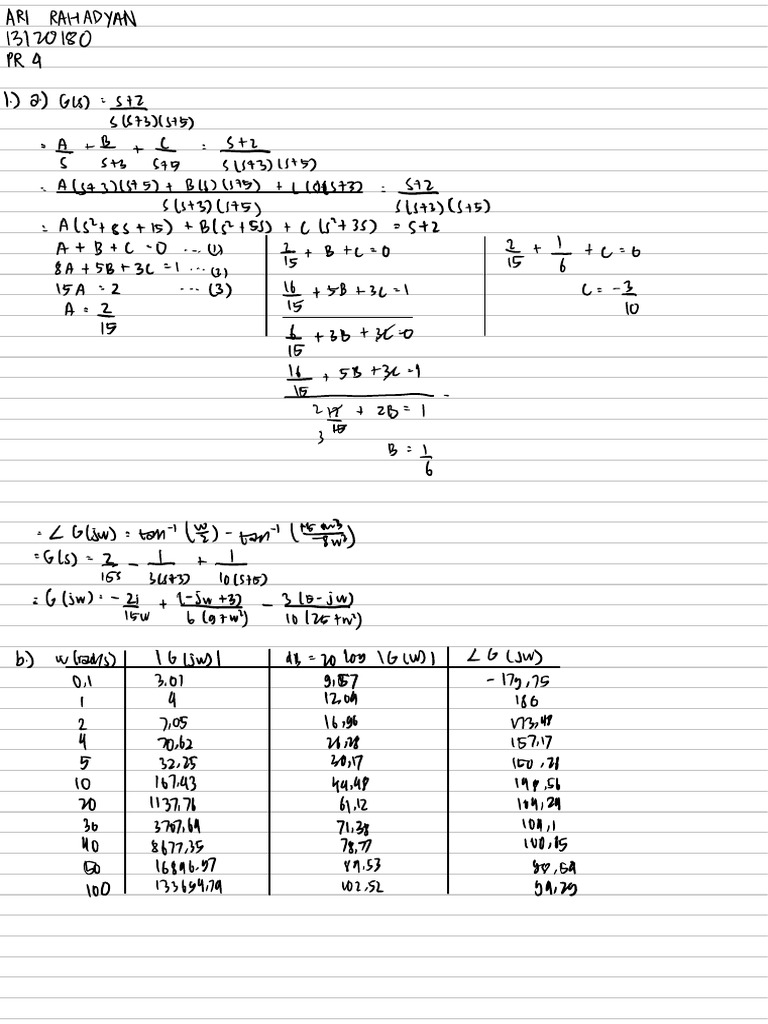 ARI RAHADYAN
13120180
PR 4
1.) a) G(s) = s+2 / s(s+3)(s+5)
= A/s + B/s+3 + C/s+5 = s+2 / s(s+3)(s+5)
= A(s+3)(s+5) + B(s)(s+5) + C(s)(s+3) / s(s+3)(s+5) = s+2 / s(s+3)(s+5)
= A(s²+8s+15) + B(s²+5s) + C(s²+3s) = s+2
A + B + C = 0 ... (1)
8A + 5B + 3C = 1 ... (2)
15A = 2 ... (3)
A = 2/15
2/15 + B + C = 0
16/15 + 5B + 3C = 1
6/15 + 3B + 3C = 0
16/15 + 5B + 3C = 1
2/3 + 2B = 1
B = 1/6
2/15 + 1/6 + C = 0
C = -3/10
= ∠ G(jw) = tan⁻¹ (w/2) - tan⁻¹
= G(s) = 2/15s - 1/3(s+3) + 1/10(s+5)
= G(jw) = - 2j/15w + (-jw+3)/6(9+w²) - 3(5-jw)/10(25+w²)
b.) w (rad/s) | |G(jw)| | dB = 20 log |G(w)| | ∠ G (jw)
0,1 | 3,01 | 9,57 | -179,75
1 | 4 | 12,04 | 180
2 | 7,05 | 16,96 | 173,48
4 | 20,62 | 26,28 | 157,17
5 | 32,25 | 30,17 | 150,26
10 | 167,43 | 44,48
20 | 1137,76 | 61,12
30 | 3707,64 | 71,38 | 109,1
40 | 8677,35 | 78,77
50 | 16896,97
100 | 102,52